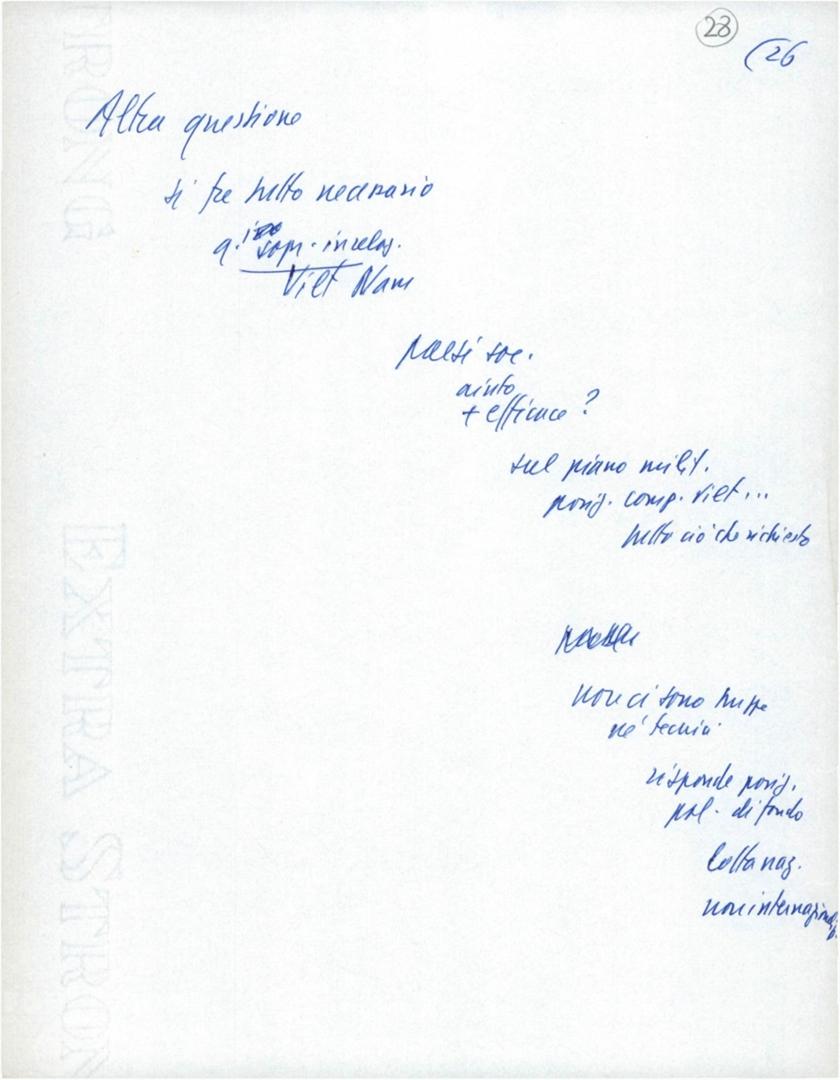 28
(26
Altra questione
si fa tutto necessario
q.
Viet Nam
paesi soc.
aiuto
+ efficace ?
sul piano milit.
posiz. comp. viet...
tutto ciò che richiesto
non ci sono truppe
né tecnici
risponde posiz.
pol. di fondo
lotta naz.
non internazionaliz.
TRONG
EXTRA STRON